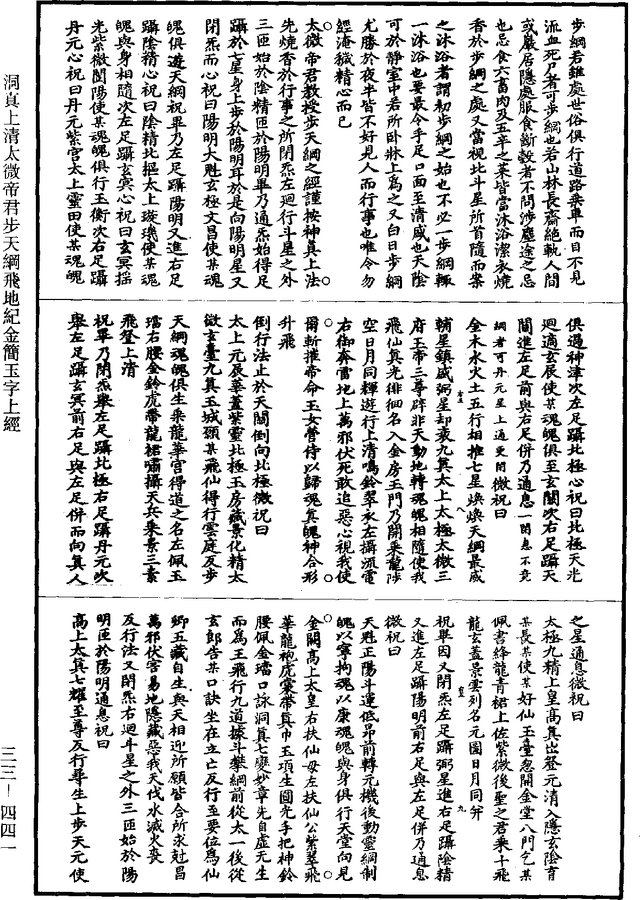 步綱君雖處世俗俱行道路乘車而目不見
流血死尸者可步綱也若山林長齋絕軌人間
或巖居隱處服食斷穀者不問涉塵途之忌
也忌食六畜肉及五辛之菜皆當沐浴潔衣燒
香於步綱之處又當視北斗星所首隨而案
之沐浴者謂初步綱之始也不必一步綱輒
一沐浴也要最令手足口面至清盛也天陰
可於靜室中若所臥牀上為之又白日步綱
尤勝於夜半皆不好見人而行事也唯令勿
經淹穢精心而已
太微帝君教授步天綱之經謹按神真上法
先燒香於行事之所閉炁左迴行斗星之外
三匝始於陰精匝於陽明畢乃通炁始得足
躡於七星身上步於陽明耳於是向陽明星又
閉炁而心祝曰陽明大魁玄極文昌使某魂
魄俱遊天綱祝畢乃左足躡陽明又進右足
躡陰精心祝曰陰精北摳太上璇璣使某魂
魄與身相隨次左足躡玄冥心祝曰玄冥搖
光紫微閶陽使某魂魄俱行玉衡次右足躡
丹元心祝曰丹元紫宮太上靈田使某魂魄
俱過神津次左足躡北極心祝曰北極天光
迴適玄辰使某魂魄俱至玄關次右足躡天
關進左足前與右足併乃通息一閉息不竟
綱者可丹元星上通更閉微祝曰
金木水火土五行相推七星煥煥天綱最威
輔星鎮盛弼星却衰九真太上太極太微三
府玉帝三尊辟非天動地轉魂魄相隨使我
飛仙真光徘徊名入金房玉門乃開乘龍陟
空日月同輝遊行上清鳴鈴翠衣左攝流電
右御奔雷地上萬邪伏死敢追惡心視我使
爾斬摧帝命玉女營侍以歸魂真魄神合形
升飛
倒行法止於天關倒向北極微祝曰
太上元辰華蓋紫靈北極玉房藏景化精太
微玄臺九真玉城願某飛仙得行雲庭反步
天綱魂魄俱生乘龍華宮得道之名左佩玉
璫右腰金鈴虎帶龍裙嘯攝天兵乘景三素
飛登上清
祝畢乃閉炁舉左足躡北極右足躡丹元次
舉左足躡玄冥前右足與左足併而向真人
之星通息微祝曰
太極九精上皇高真出登元清入隱玄陰育
某長某使某好仙玉臺忽開金堂八門乞某
佩書絳龍青裙上佐紫微後聖之君乘十飛
龍玄蓋景雲列名元圖日月同年
祝畢因又閉炁左足躡弼星進右足躡陰精
又進左足躡陽明前右足與左足併乃通息
微祝曰
天魁正陽斗運低昂前轉元機後動靈綱制
魄以寧拘魂以康魂魄與身俱行天堂向見
金闕高上太皇右扶仙母左扶仙公紫翠飛
華龍袍虎裳帶真巾玉項生圓光手把神鈴
腰佩金璫口詠洞真七變妙章先自虛无生
而為王飛行九道據斗攀綱前從太一後從
玄郎告某口訣坐在立亡反行至要位為仙
卿五藏自生與天相迎所願皆合所求尅昌
萬邪伏害易地隱藏惡我天伐水滅火喪
反行法又閉炁右迴斗星之外三匝始於陽
明匝於陽明通息祝曰
高上太真七耀至尊反行尋生上步天元使
洞真上清太微帝君步天綱飛地紀金簡玉字上經
三三—四四一